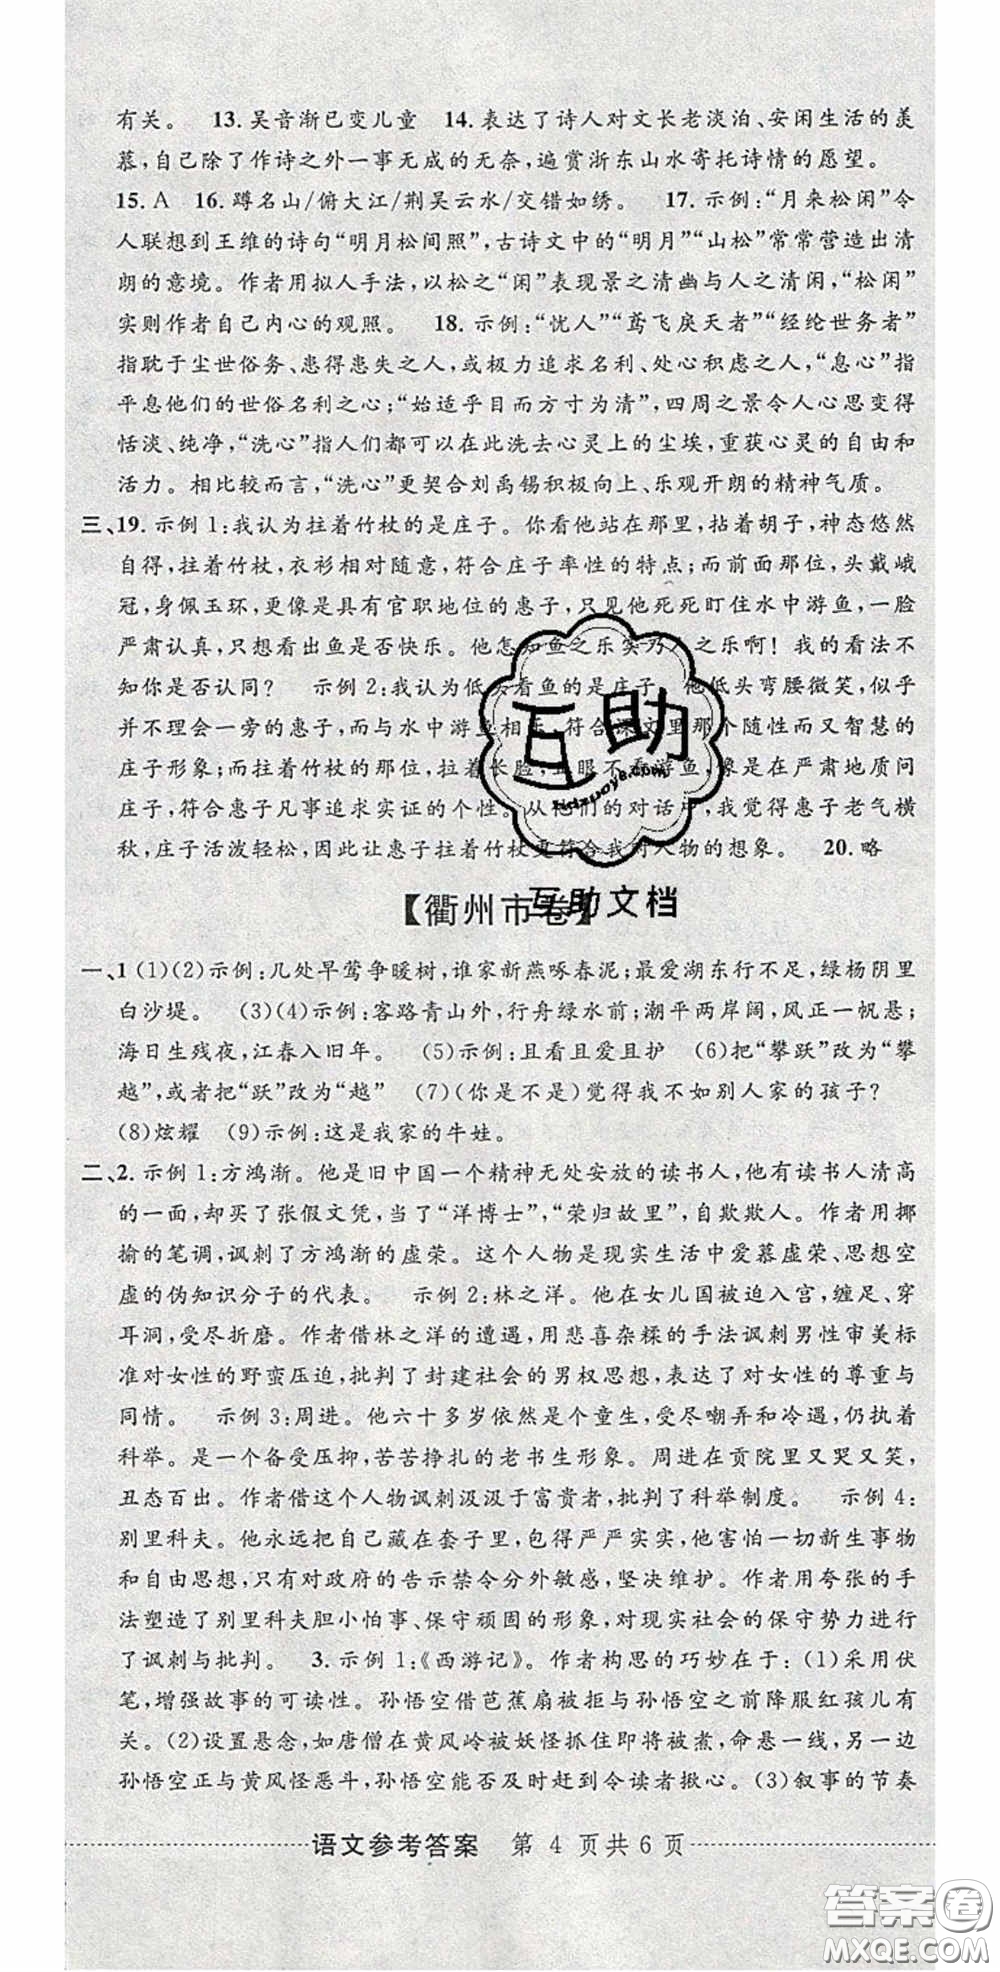 有关。 13. 吴音渐已变儿童 14. 表达了诗人对文长老淡泊、安闲生活的羡
慕，自己除了作诗之外一事无成的无奈，遍赏浙东山水寄托诗情的愿望。
15. A 16. 蹲名山/俯大江/荆吴云水/交错如绣。 17. 示例：“月来松闲”令
人联想到王维的诗句“明月松间照”，古诗文中的“明月”“山松”常常营造出清
朗的意境。作者用拟人手法，以松之“闲”表现景之清幽与人之清闲，“松闲”
实则作者自己内心的观照。 18. 示例：“忧人”“鸢飞戾天者”“经纶世务者”
指耽于尘世俗务、患得患失之人，或极力追求名利、处心积虑之人，“息心”指
平息他们的世俗名利之心；“始适乎目而方寸为清”，四周之景令人心思变得
恬淡、纯净，“洗心”指人们都可在此洗去心灵上的尘埃，重获心灵的自由和
活力。相比较而言，“洗心”更契合刘禹锡积极向上、乐观开朗的精神气质。
三、19. 示例 1：我认为拄着竹杖的是庄子。你看他站在那里，拈着胡子，神态悠然
自得，拄着竹杖，衣衫相对随意，符合庄子率性的特点；而前面那位，头戴峨
冠，身佩玉环，更像是具有官职地位的惠子，只见他死死盯住水中游鱼，一脸
严肃认真，只想看出鱼是否快乐。他怎知鱼之乐实乃人之乐啊！我的看法不
知你是否认同？ 示例 2：我认为低头看鱼的是庄子。他低头弯腰微笑，似乎
并不理会一旁的惠子，而与水中游鱼相乐，符合课文里那个随性而又智慧的
庄子形象；而拄着竹杖的那位，拉着长脸，正眼不看游鱼，像是在严肃地质问
庄子，符合惠子凡事追求实证的个性。从他们的对话中，我觉得惠子老气横
秋，庄子活泼轻松，因此让惠子拄着竹杖更符合我对人物的想象。 20. 略
互助
互助文档
【衢州市卷】
一、1 (1)(2)示例：几处早莺争暖树，谁家新燕啄春泥；最爱湖东行不足，绿杨阴里
白沙堤。 (3)(4)示例：客路青山外，行舟绿水前；潮平两岸阔，风正一帆悬；
海日生残夜，江春入旧年。 (5)示例：且看且爱且护 (6)把“攀跃”改为“攀
越”，或者把“跃”改为“越” (7)(你是不是)觉得我不如别人家的孩子？
(8)炫耀 (9)示例：这是我家的牛娃。
二、2. 示例 1：方鸿渐。他是旧中国一个精神无处安放的读书人，他有读书人清高
的一面，却买了张假文凭，当了“洋博士”，“荣归故里”，自欺欺人。作者用揶
揄的笔调，讽刺了方鸿渐的虚荣。这个人物是现实生活中爱慕虚荣、思想空
虚的伪知识分子的代表。 示例 2：林之洋。他在女儿国被迫入宫，缠足、穿
耳洞，受尽折磨。作者借林之洋的遭遇，用悲喜杂糅的手法讽刺男性审美标
准对女性的野蛮压迫，批判了封建社会的男权思想，表达了对女性的尊重与
同情。 示例 3：周进。他六十多岁依然是个童生，受尽嘲弄和冷遇，仍执着
科举。是一个备受压抑，苦苦挣扎的老书生形象。周进在贡院里又哭又笑，
丑态百出。作者借这个人物讽刺汲汲于富贵者，批判了科举制度。 示例 4：
别里科夫。他永远把自己藏在套子里，包得严严实实，他害怕一切新生事物
和自由思想，只有对政府的告示禁令分外敏感，坚决维护。作者用夸张的手
法塑造了别里科夫胆小怕事、保守顽固的形象，对现实社会的保守势力进行
了讽刺与批判。 3. 示例 1：《西游记》。作者构思的巧妙在于：(1)采用伏
笔，增强故事的可读性。孙悟空借芭蕉扇被拒与孙悟空之前降服红孩儿有
关。(2)设置悬念，如唐僧在黄风岭被妖怪抓住即将被煮，命悬一线，另一边
孙悟空正与黄风怪恶斗，孙悟空能否及时赶到令读者揪心。(3)叙事的节奏
语文参考答案 第 4 页共 6 页
答案圈
MXQE.COM